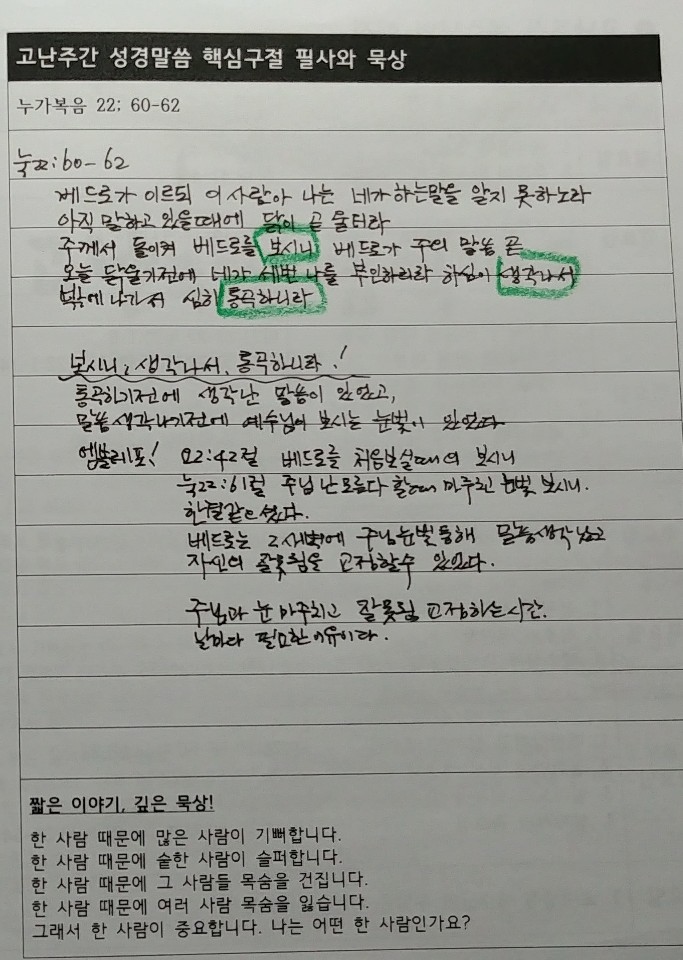 고난주간 성경말씀 핵심구절 필사와 묵상
누가복음 22: 60-62
눅22:60-62
베드로가 이르되 이 사람아 나는 네가 하는말을 알지 못하노라
아직 말하고 있을때에 닭이 곧 울더라
주께서 돌이켜 베드로를 보시니 베드로가 주의 말씀 곧
오늘 닭울기전에 네가 세번 나를 부인하리라 하심이 생각나서
밖에 나가서 심히 통곡하니라
보시니, 생각나서, 통곡하니라!
통곡하기전에 생각난 말씀이 있었고,
말씀생각나기전에 예수님이 보시는 눈빛이 있었다
엠블레포! 요2:42절 베드로를 처음보실때의 보시니
눅22:61절 주님 난모른다 할때 마주친 눈빛 보시니.
한결같으셨다.
베드로는 그새벽에 주님눈빛통해 말씀생각났고
자신의 잘못됨을 교정할수 있었다.
주님과 눈 마주치고 잘못됨 교정하는시간.
날마다 필요한 이유이다.
짧은 이야기, 깊은 묵상!
한 사람 때문에 많은 사람이 기뻐합니다.
한 사람 때문에 숱한 사람이 슬퍼합니다.
한 사람 때문에 그 사람들 목숨을 건집니다.
한 사람 때문에 여러 사람 목숨을 잃습니다.
그래서 한 사람이 중요합니다. 나는 어떤 한 사람인가요?